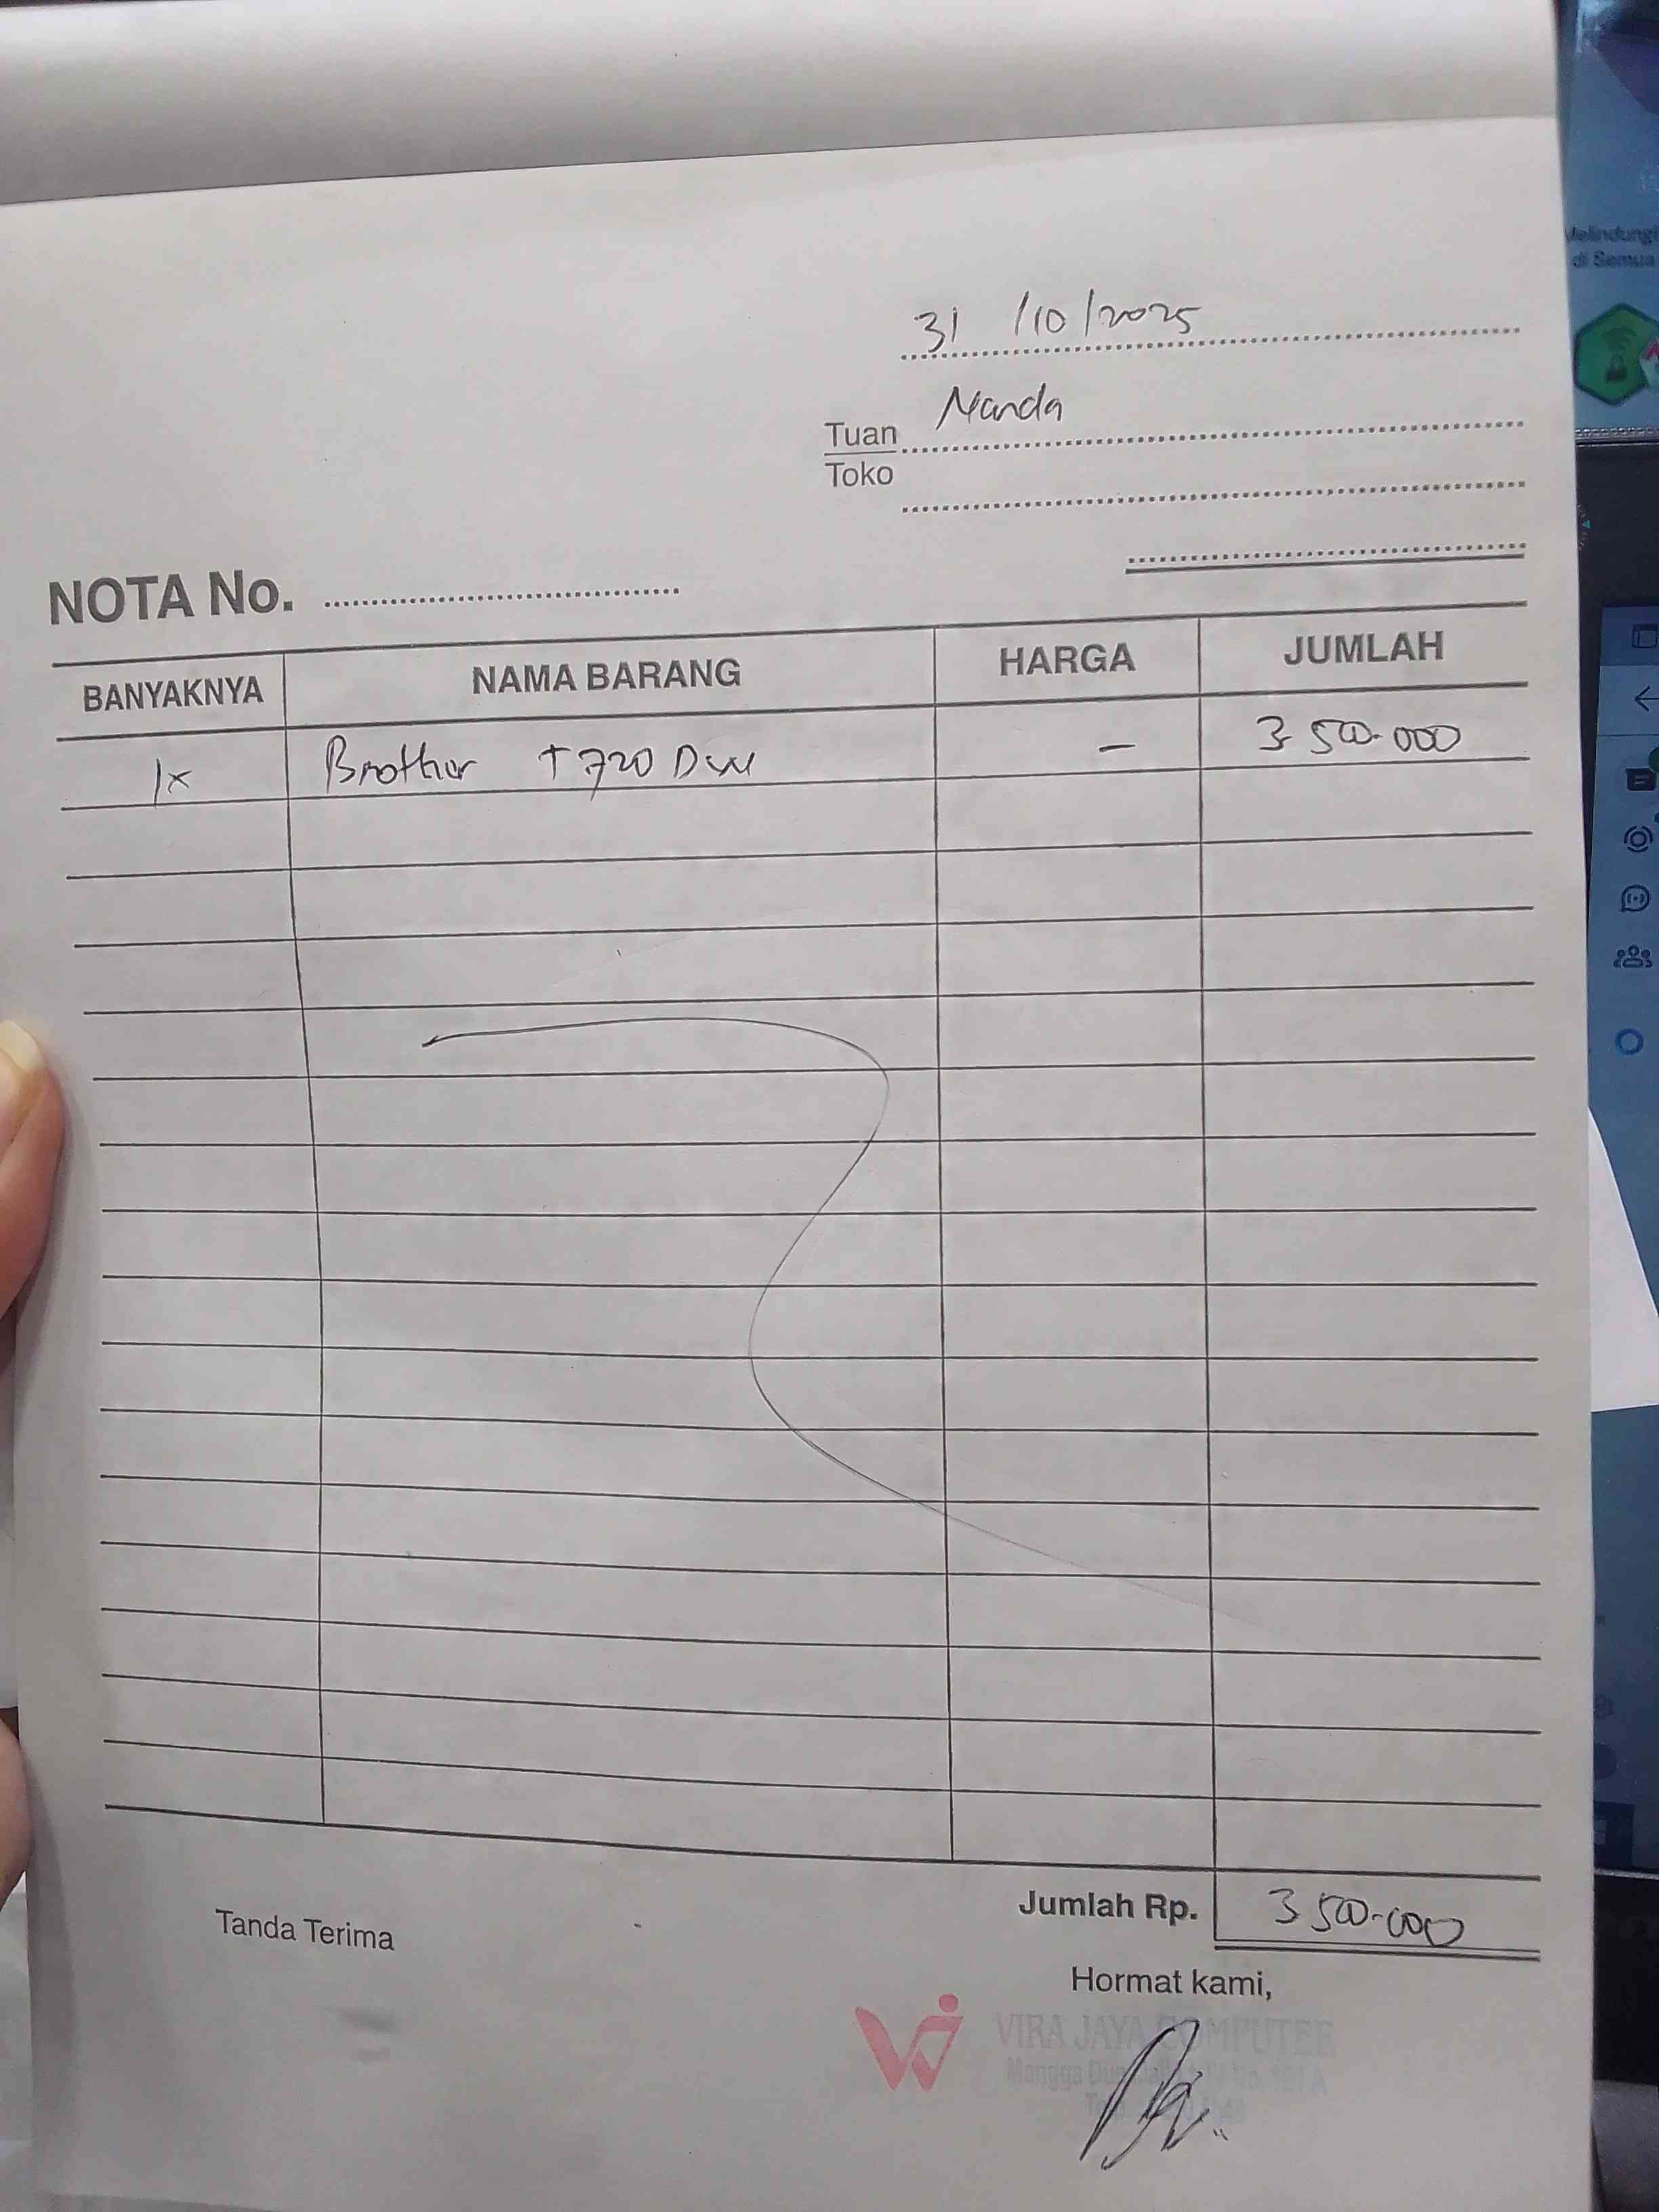 Melindungi
di Semua
31 /10/2025
Tuan Nanda
Toko
NOTA No.
BANYAKNYA NAMA BARANG HARGA JUMLAH
1x Brother T720 DW - 3.500.000
Jumlah Rp. 3.500.000
Tanda Terima
Hormat kami,
VIRA JAYA COMPUTER
Mangga Dua